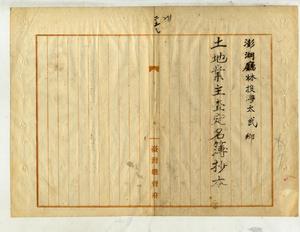 澎湖廳林投澳太武鄉
土地業主查定名簿抄本
臺灣總督府